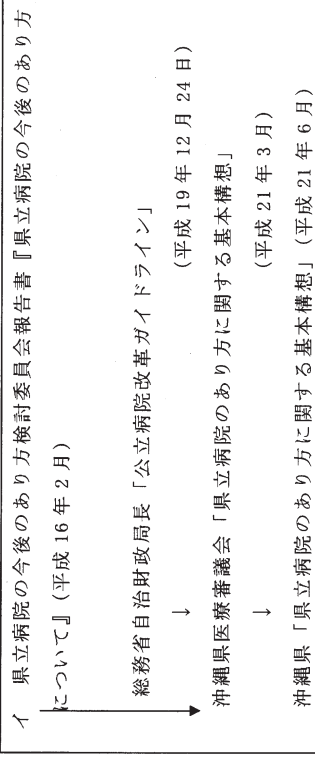 イ　県立病院の今後のあり方検討委員会報告書『県立病院の今後のあり方
について』(平成 16 年 2 月)
総務省自治財政局長「公立病院改革ガイドライン」
↓　(平成 19 年 12 月 24 日)
沖縄県医療審議会「県立病院のあり方に関する基本構想」
↓　(平成 21 年 3 月)
沖縄県「県立病院のあり方に関する基本構想」(平成 21 年 6 月)